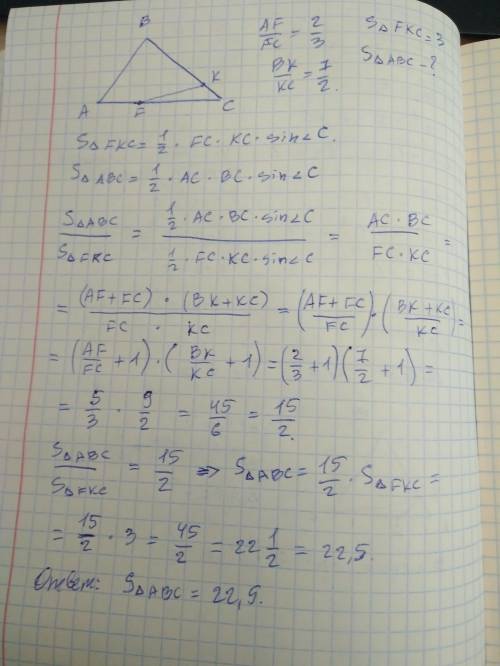 B
K
A F C
AF/FC = 2/3
S△FKC = 3
BK/KC = 7/2.
S△ABC - ?
S△FKC = 1/2 · FC · KC · sin∠C.
S△ABC = 1/2 · AC · BC · sin∠C
S△ABC/S△FKC = (1/2 · AC · BC · sin∠C)/(1/2 · FC · KC · sin∠C) = (AC · BC)/(FC · KC) =
= ((AF+FC) · (BK+KC))/(FC · KC) = ((AF+FC)/FC) · ((BK+KC)/KC) =
= (AF/FC + 1) · (BK/KC + 1) = (2/3 + 1)(7/2 + 1) =
= 5/3 · 9/2 = 45/6 = 15/2.
S△ABC/S△FKC = 15/2 => S△ABC = 15/2 · S△FKC =
= 15/2 · 3 = 45/2 = 22 1/2 = 22,5.
Ответ: S△ABC = 22,5.